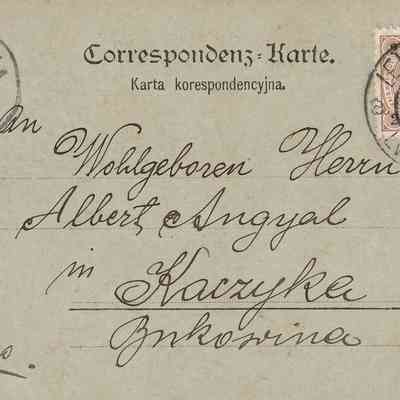 Correspondenz-Karte.
Karta korespondencyjna.
An
Wohlgeboren Herrn
Albert Angyal
in Kaczyka
Bukowina